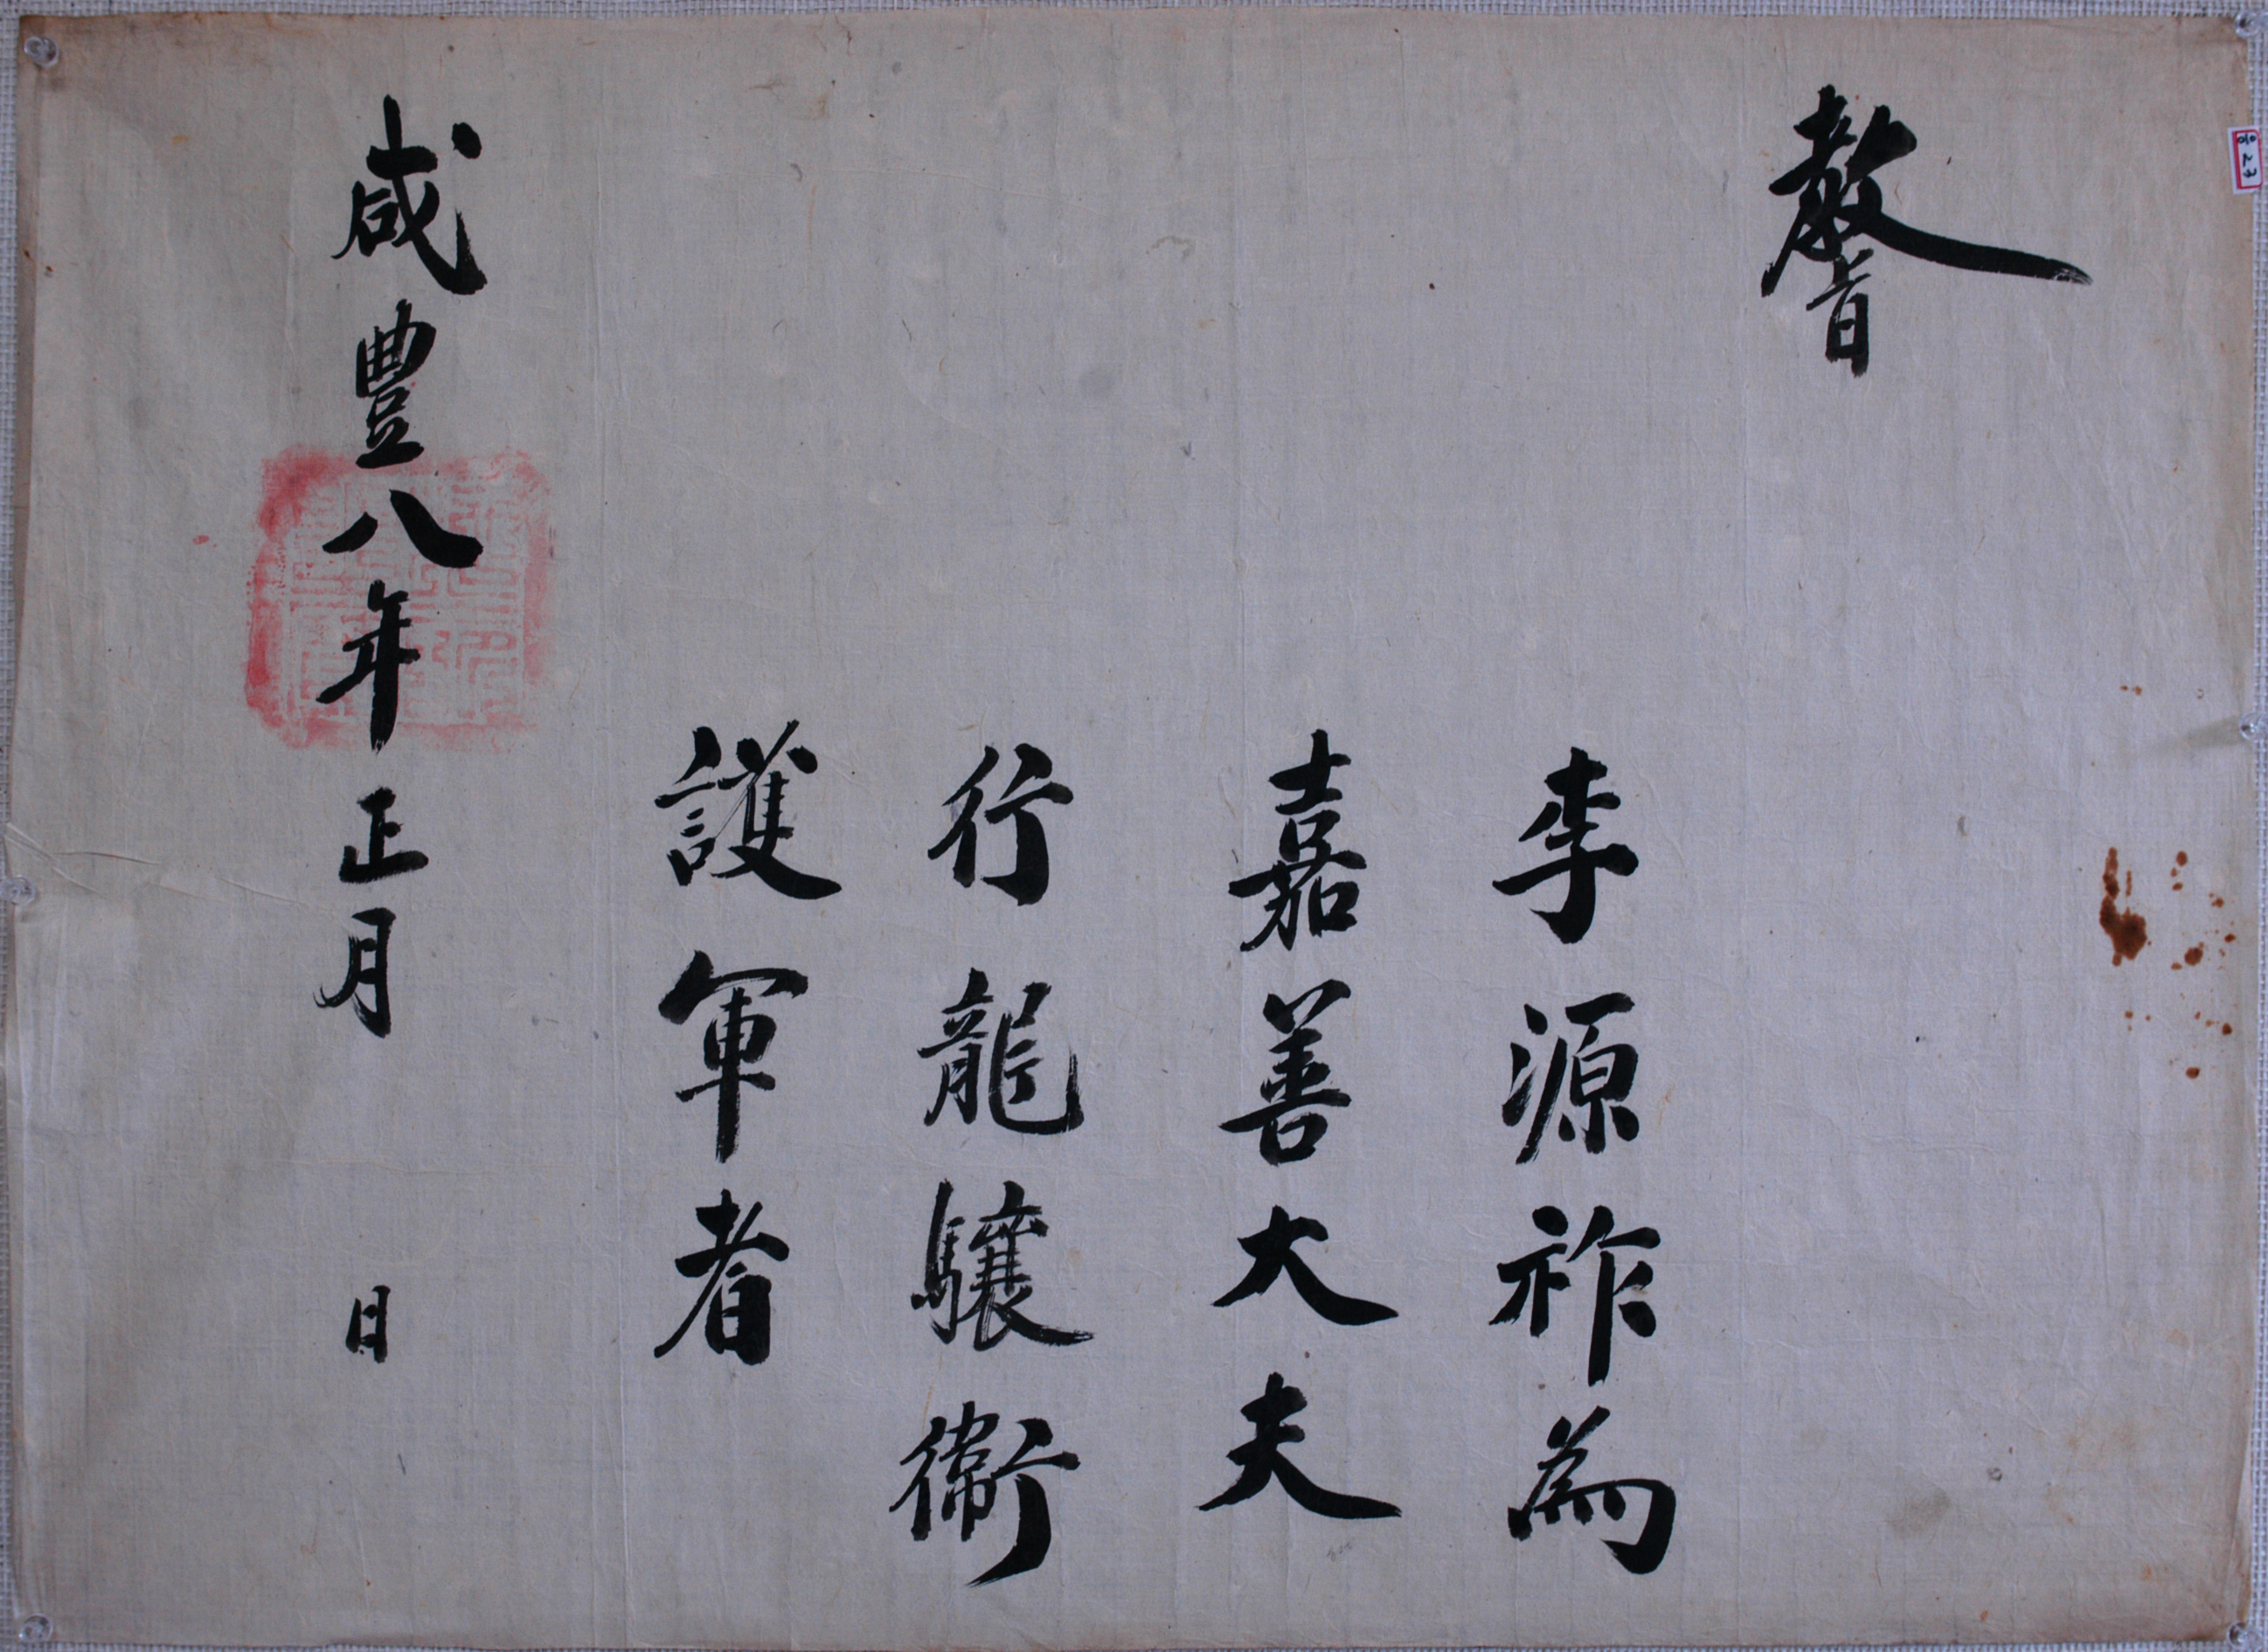 教旨
李源祚為
嘉善大夫
行龍驤衛
護軍者
咸豐八年正月 日